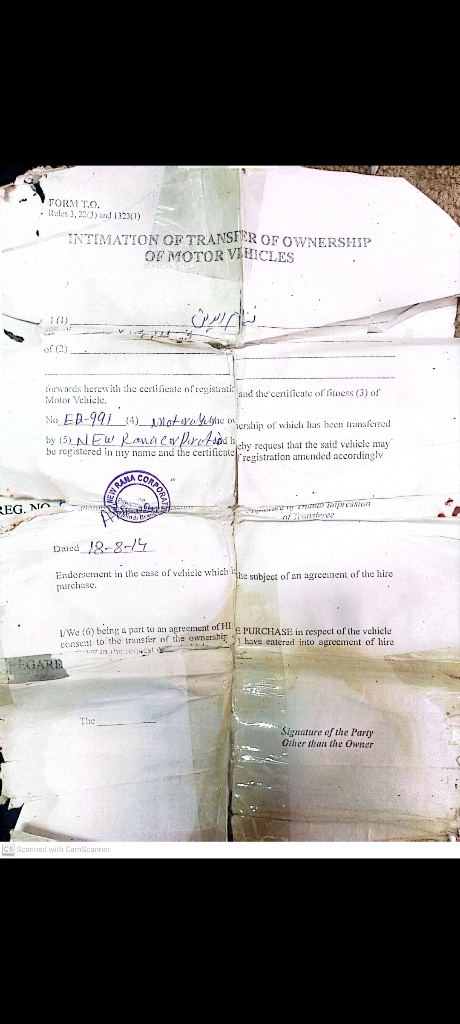 FORM T.O.
Rules 3, 22(3) and 1323(1)
INTIMATION OF TRANSFER OF OWNERSHIP
OF MOTOR VEHICLES
I (1)
of (2)
forwards herewith the certificate of registratic and the certificate of fitness (3) of
Motor Vehicle.
No EB-991 (4) he ow ership of which has been transferred
by (5) NEW Rana Corporation d h eby request that the said vehicle may
be registered in my name and the certificate f registration amended accordingly
NEW RANA CORPORATI
REG. NO
Signature or Thumb Impression
of Transferee
Dated 18-8-14
Endorsement in the case of vehicle which is he subject of an agreement of the hire
purchase.
I/We (6) being a part to an agreement of HI E PURCHASE in respect of the vehicle
consent to the transfer of the ownership ) have entered into agreement of hire
in the request
EGARE
The
Signature of the Party
Other than the Owner
CS Scanned with CamScanner